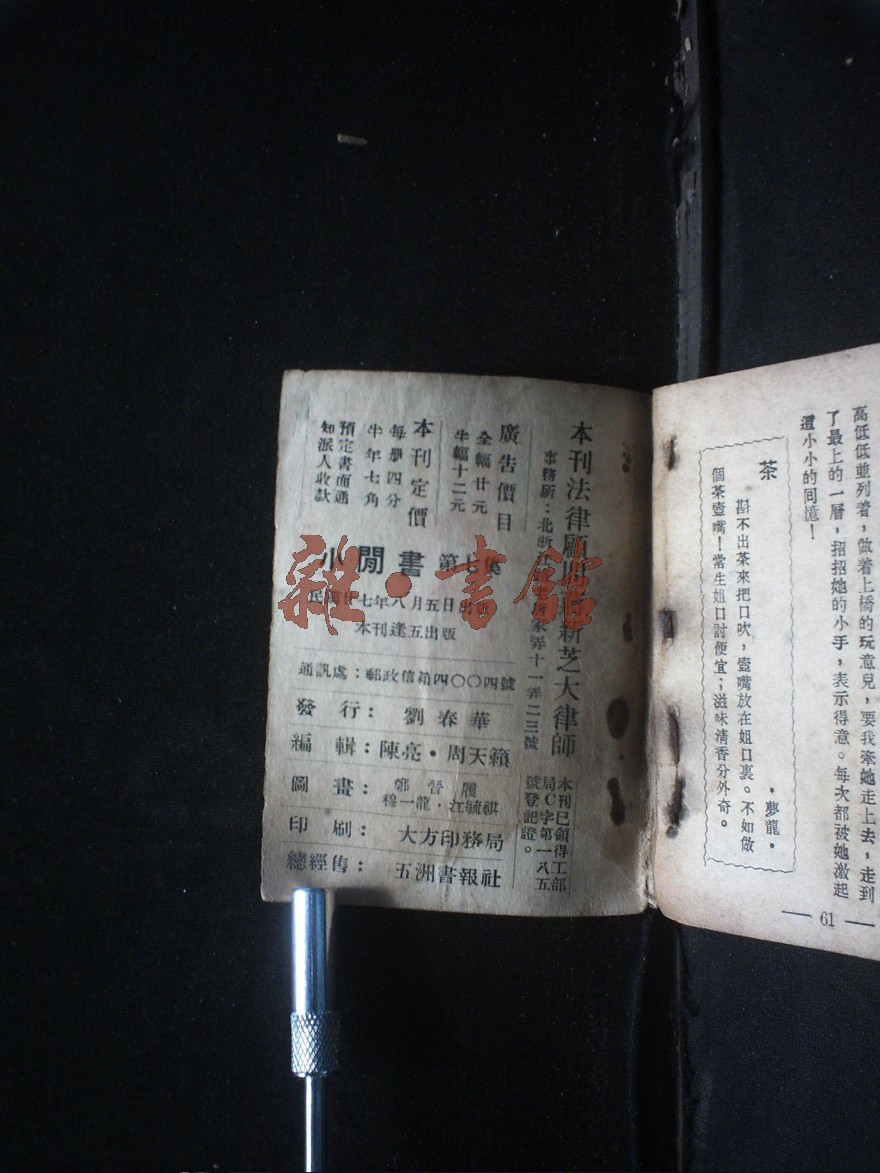 高低低並列着，做着上橋的玩意兒，要我牽她走上去，走到
了最上的一層，招招她的小手，表示得意。每次都被她激起
這小小的回憶！
茶
·夢龍·
斟不出茶來把口吹，壺嘴放在姐口裏。不如做
個茶壺嘴！常生姐口討便宜；滋味清香分外奇。
— 61 —
本刊法律顧問 新芝大律師
事務所：北浙 家弄十一弄二三號
本刊已領得工部
局C字第一八五
號登記證。
廣告價目
全幅廿元
半幅十二元
本刊定價
每册四分
半年七角
預定書面通
知派人收款
小閒書 第七集
民國廿七年八月五日出版
本刊逢五出版
通訊處：郵政信箱四〇〇四號
發行：劉春華
編輯：陳亮·周天籟
圖畫：鄭
穆一龍·江毓祺
印刷：大方印務局
總經售：五洲書報社
雜·書館